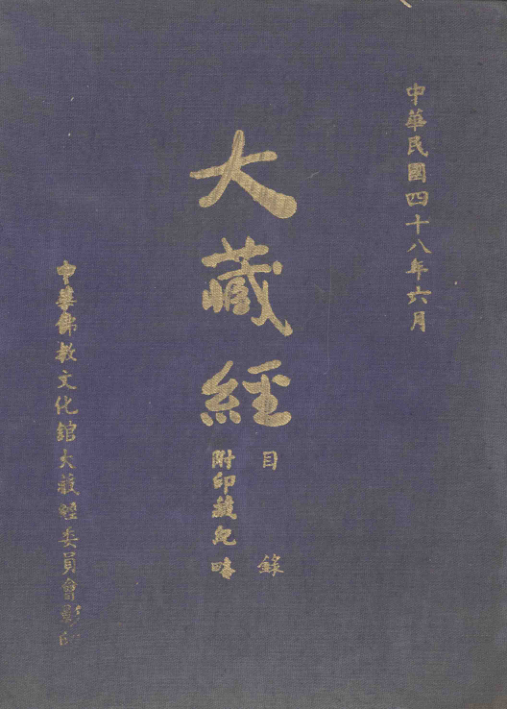 中華民國四十八年六月
大藏經
目錄
附印藏紀略
中華佛教文化館大藏經委員會影印